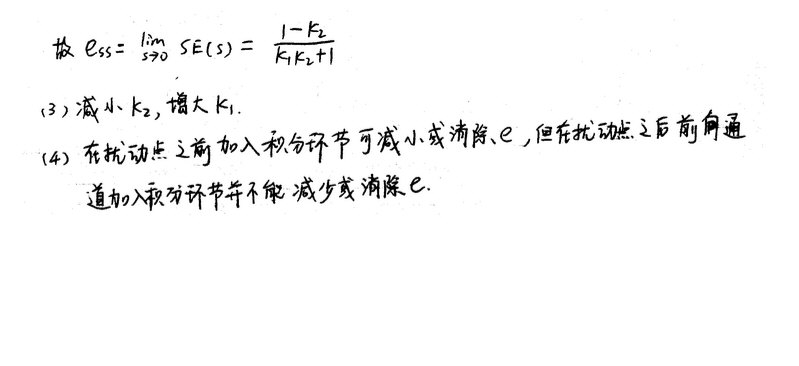 故 ess = lim s→0 SE(s) = (1-K₂)/(K₁K₂+1)
(3) 减小 K₂, 增大 K₁.
(4) 在扰动点之前加入积分环节可减小或消除 e, 但在扰动点之后前向通
道加入积分环节并不能减少或消除 e.